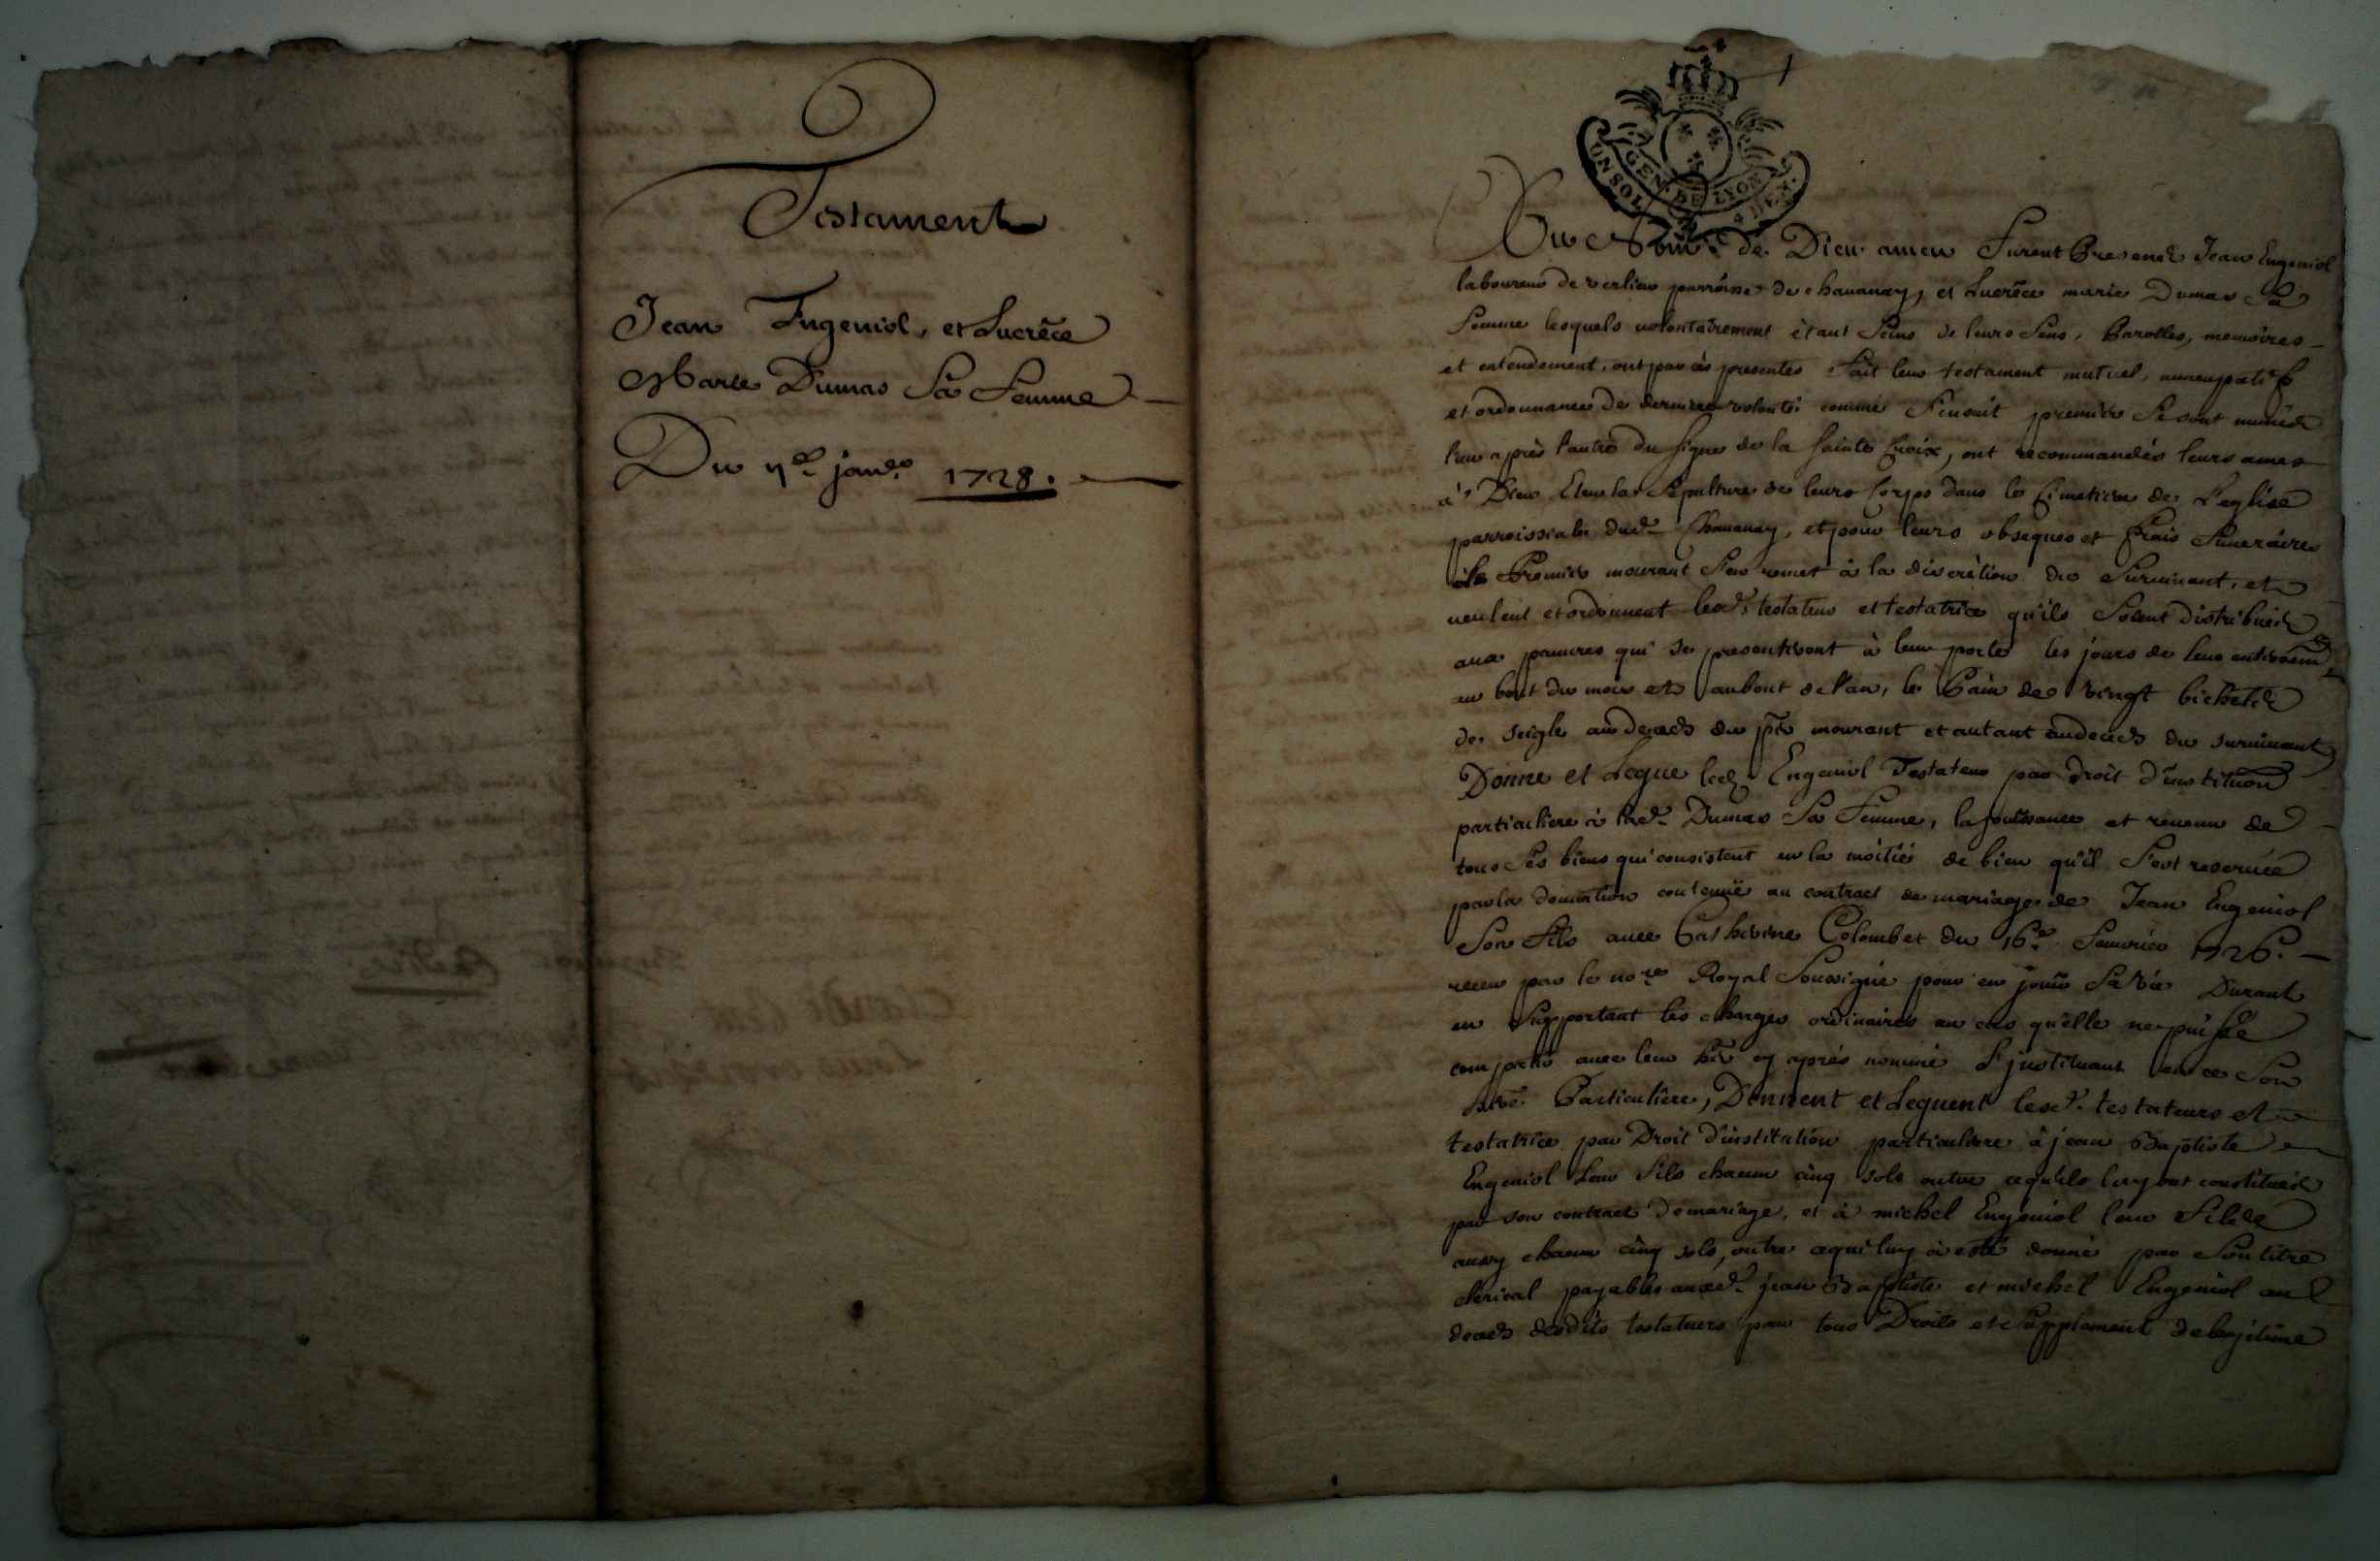 Testament
Jean Engeniol, et Lucrêce
Marie Dumas Sa Femme
Du janv. 1728.
GEN. DE LYON
UN SOL 4 DEN.
Au Nom de Dieu amen Furent Presents Jean Engeniol
laboureur de verlieu parroisse de chauanay, et Lucrêce marie Dumas Sa
Femme lesquels volontairement étant Seins de leurs Sens, Parolles, memoires
et entendement, ont par ces presentes Fait leur testament mutuel, nuncupatif
et ordonnance de derniere volonté comme Sensuit premier Se sont munies
l'un après l'autre du Signe de la Sainte Croix, ont recommandés leurs ames
à Dieu Eleu la Sepulture de leurs Corps dans le Cimetiere de L'eglise
parroissiale dud. Chauanay, et pour leurs obseques et Frais Funeraires
le Premier mourant S'en remet à la discrétion du Suruiuant, et
ueulent et ordonnent lesd. testateur et testatrice qu'ils Soient distribués
aux pauures qui se presenteront à leur porte les jours de leur enterrem
au bout du mois et au bout de l'an, le Pain de vingt bichets
de seigle au deceds du pr mourant et autant audeceds du suruiuant
Donne et Legue led. Engeniol Testateur par droit d'institution
particuliere à lad. Dumas Sa Femme, la jouissance et reuenu de
tous Ses biens qui consistent en la moitié de bien qu'il S'est reseruée
par la donation contenuë au contract de mariage de Jean Engeniol
Son Fils auec Catherine Colombet du 16e Feurier 1726.
receu par le nore Royal Soussigné pour en jouir Sa vie Durant
en Supportant les charges ordinaires au cas qu'elle ne puisse
compatir auec leur her cy après nommé L'jnstituant en ce Son
Particuliere, Donnent et Leguent lesd. testateurs et
testatrice par Droit d'institution particuliere à jean Baptiste
Engeniol Leur Fils chacun cinq sols outre cequ'ils luy ont constitués
par son contract de mariage, et à michel Engeniol leur Fils
aussy chacun cinq sols, outre cequi luy à esté donné par Son titre
clerical payables ausd. jean Baptiste et michel Engeniol au
deceds desdits testateurs pour tous Droits et Supplement de legitime